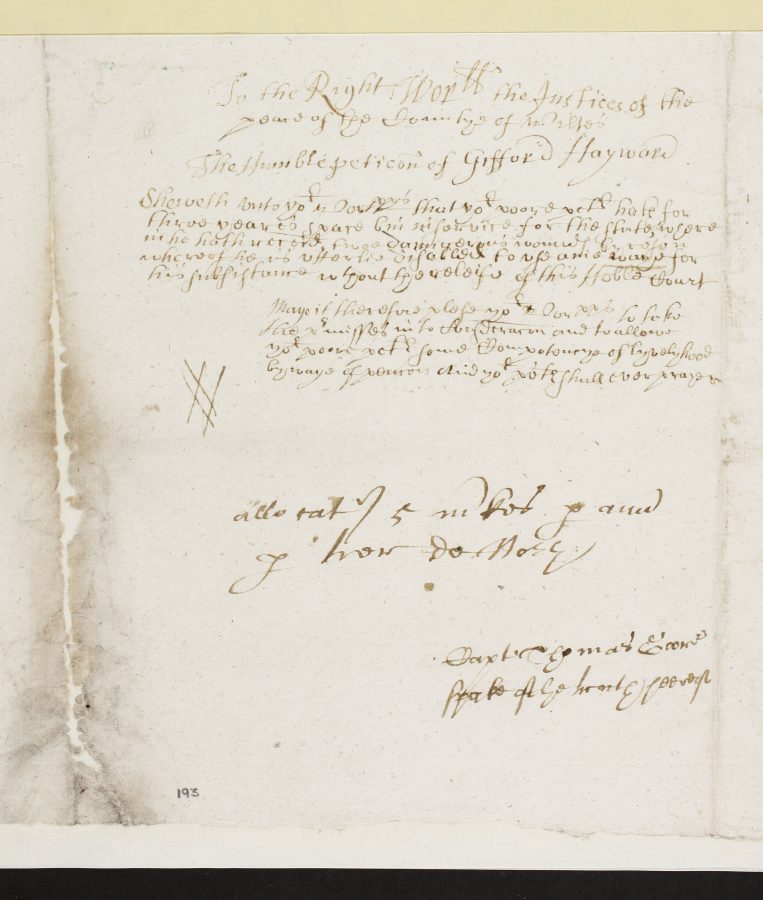 To the Right Worpll the Justices of the
peace of the Countye of Wiltes
The Humble peticon of Gifford Hayward
Sheweth unto yor Worpps that yor poore petr hath for
three yeares space bin in service for the state where
in he hath received three daungerous wounds by reson
whereof he is utterlie disabled to use anie waye for
his subsistance wthout the releife of this Noble Court
May it therefore plese yor Worpps to take
the prmisses into Consideracon and to allowe
yor poore petr some Competencye of lyvelyhood
by waye of pencon And yor petr shall ever praye
allocatr 5 mkes p ann
p
Capt Thomas
spake of the
193